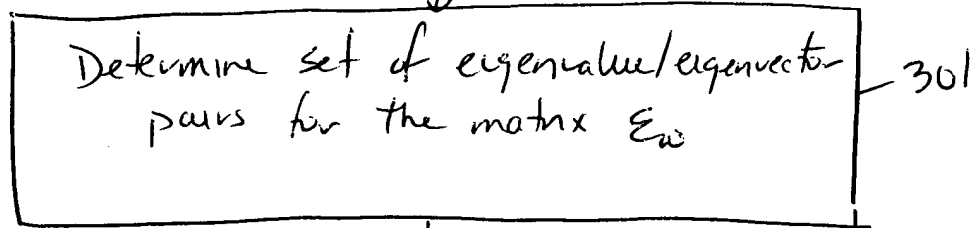 Determine set of eigenvalue/eigenvector
pairs for the matrix Ɛw
301